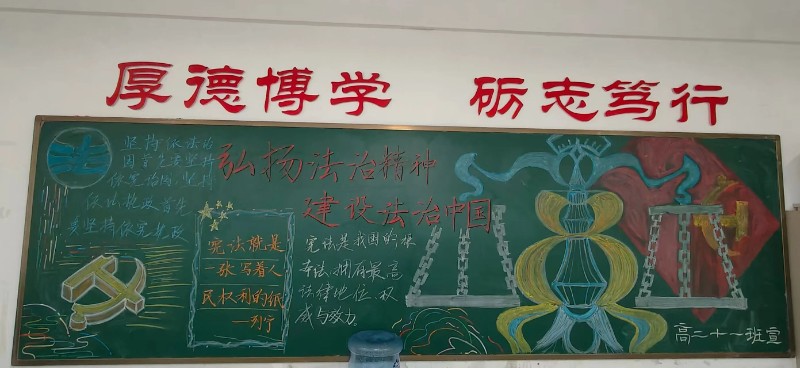 厚德博学 砺志笃行
法
坚持依法治
国首先要坚持
依宪治国,坚持
依法执政首先
要坚持依宪执政
弘扬法治精神
建设法治中国
宪法就是
一张写着人
民权利的纸
—列宁
宪法是我国的根
本法,拥有最高
法律地位、权
威与效力。
高二十一班宣